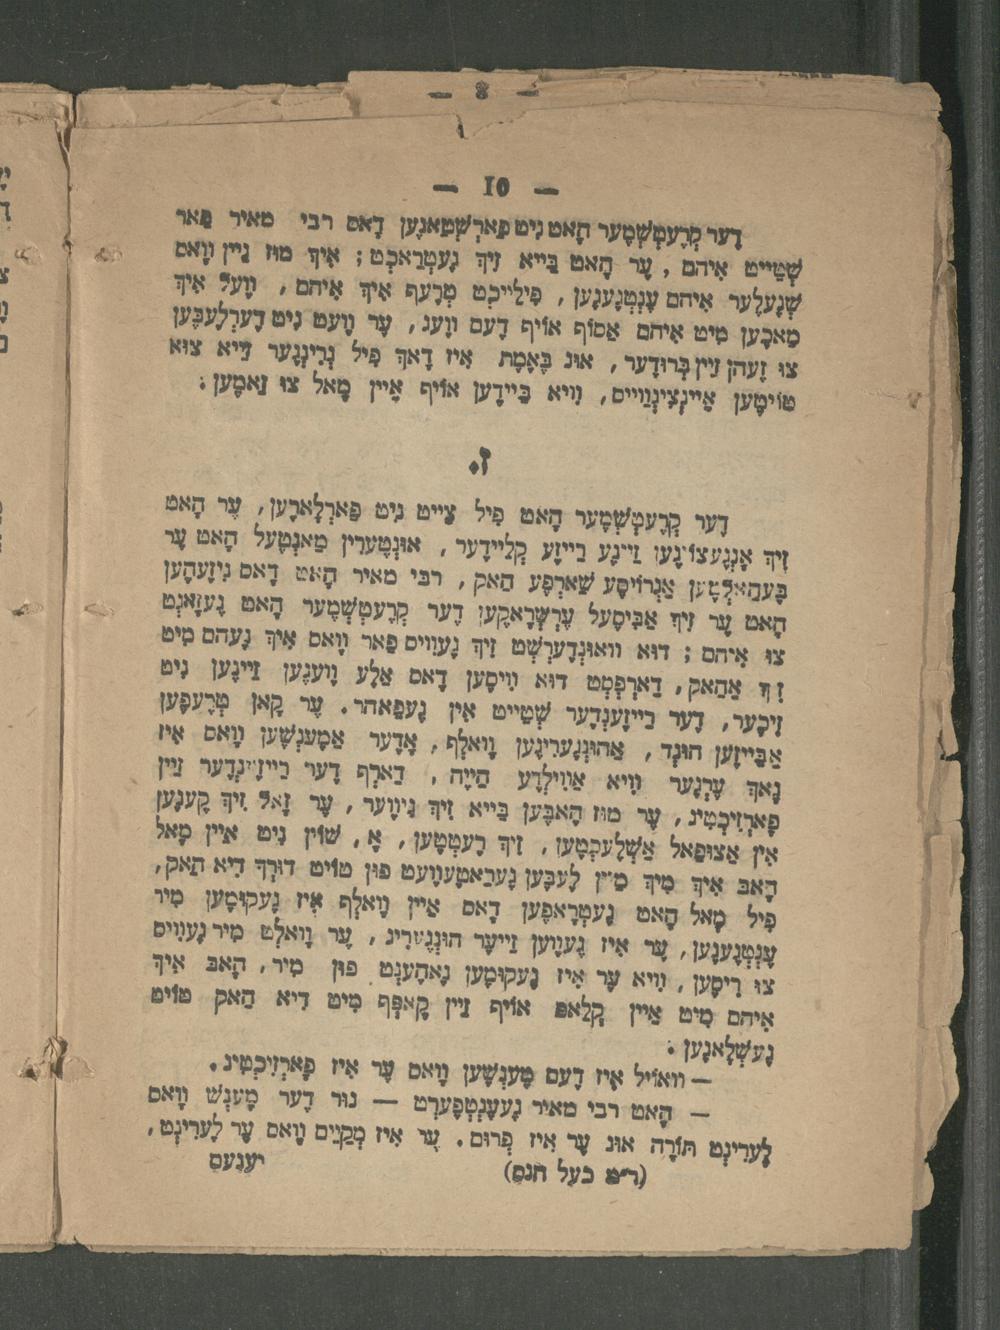 — 8 —
— 10 —
דֶער קְרֶעטְשְׁמֶער הָאט נִיט פַארְשְׁטַאנֶען דָאס רבי מאיר פַאר
שְׁטֵייט אִיהם, עֶר הָאט בַּייא זִיךְ גֶעטְרַאכְט; אִיךְ מוּז זֵיין וָואס
שְׁנֶעלֶער אִיהם עֶנְטְגֶעגֶען, פִילַייכְט טְרֶעף אִיךְ אִיהם, וָועל אִיךְ
מַאכֶען מִיט אִיהם אַסוֹף אוֹיף דֶעם וועג, עֶר וָועט נִיט דֶערְלֶעבֶּען
צוּ זֶעהן זַיין בְּרוּדֶער, אוּנ בֶּאֶמֶת אִיז דָאךְ פִיל גְרִינְגֶער זֵייא צוּא
טוֹיטֶען אַיינְצִינְוַוייס, וִויא בֵּיידֶען אוֹיף אֵיין מָאל צוּ זַאמֶען:
ז.
דֶער קְרֶעטְשְׁמֶער הָאט פִיל צַייט נִיט פַארְלָארֶען, עֶר הָאט
זִיךְ אָנְגֶעצוֹיגֶען זַיינֶע רֵייזֶע קְלֵיידֶער, אוּנְטֶערִין מַאנְטֶעל הָאט עֶר
בֶּעהַאלְטֶען אַגְרוֹיסֶע שַׁארְפֶע הַאק, רבי מאיר הָאט דָאס גִיזֶעהֶען
הָאט עֶר זִיךְ אַבִּיסֶעל עֶרְשְׁרָאקֶען דֶער קְרֶעטְשְׁמֶער הָאט גֶעזָאגְט
צוּ אִיהם; דוּא וואוּנְדֶערְשְׁט זִיךְ גֶעוִויס פַאר וָואס אִיךְ נֶעהם מִיט
זִיךְ אַהַאק, דַארְפְסְט דוּא וִויסֶען דָאס אַלֶע וֶועגֶען זַיינֶען נִיט
זִיכֶער, דֶער רֵייזֶענְדֶער שְׁטֵייט אִין גֶעפַאהר. עֶר קָאן טְרֶעפֶען
אַבֵּייזֶען הוּנְד, אַהוּנְגֶערִיגֶען וָואלְף, אָדֶער אַמֶענְשֶׁען וָואס אִיז
נָאךְ עֶרְגֶער וִויא אַוִוילְדֶע חַיָה, דַארְף דֶער רֵייזֶינְדֶער זַיין
פָארְזִיכְטִיג, עֶר מוּז הָאבֶּען בַּייא זִיךְ גִיוֶוער, עֶר זָאל זִיךְ קֶענֶען
אִין אַצוּפַאל אַשְׁלֶעכְטֶען, זִיךְ רֶעטְטֶען, אָ, שׁוֹין נִיט אֵיין מָאל
הָאבּ אִיךְ מִיךְ מַיין לֶעבֶּען גֶערַאטֶעוֶועט פוּן טוֹיט דוּרְךְ דִיא הַאק,
פִיל מָאל הָאט גֶעטְרָאפֶען דָאס אֵיין וָואלְף אִיז גֶעקוּמֶען מִיר
עֶנְטְגֶעגֶען, עֶר אִיז גֶעוֶוען זֵייעֶר הוּנְגֶערִיג, עֶר וָואלְט מִיר גֶעוִויס
צוּ רִיסֶען, וִויא עֶר אִיז גֶעקוּמֶען נָאהֶענְט פוּן מִיר, הָאבּ אִיךְ
אִיהם מִיט אֵיין קְלַאפּ אוֹיף זַיין קָאפְּף מִיט דִיא הַאק טוֹיט
גֶעשְׁלָאגֶען:
— וואוֹיל אִיז דֶעם מֶענְשֶׁען וָואס עֶר אִיז פָארְזִיכְטִיג.
— הָאט רבי מאיר גֶעעֶנְטְפֶערְט — נוּר דֶער מֶענְשׁ וָואס
לֶערִינְט תּוֹרָה אוּנ עֶר אִיז פְרוּם. עֶר אִיז מְקַיֵים וָואס עֶר לֶערִינְט,
(ר״מ בעל הנס) יֶענֶעם